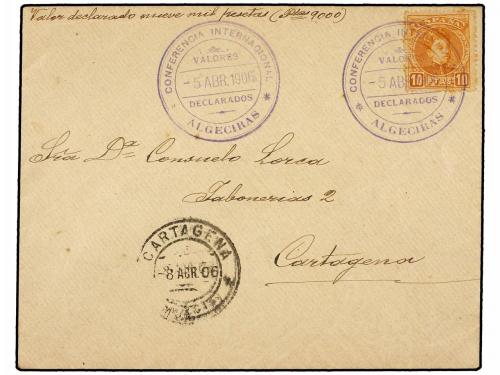 Valor declarado nueve mil pesetas (Ptas 9000)
CONFERENCIA INTERNACIONAL
VALORES
-5 ABR. 1906
DECLARADOS
ALGECIRAS
CONFERENCIA INTERNACIONAL
VALORES
-5 ABR
DECLARADOS
ALGECIRAS
ESPAÑA
10 PTAS 10
Sra Dª Consuelo Lorca
Jabonerias 2
Cartagena
CARTAGENA
-8 ABR. 06